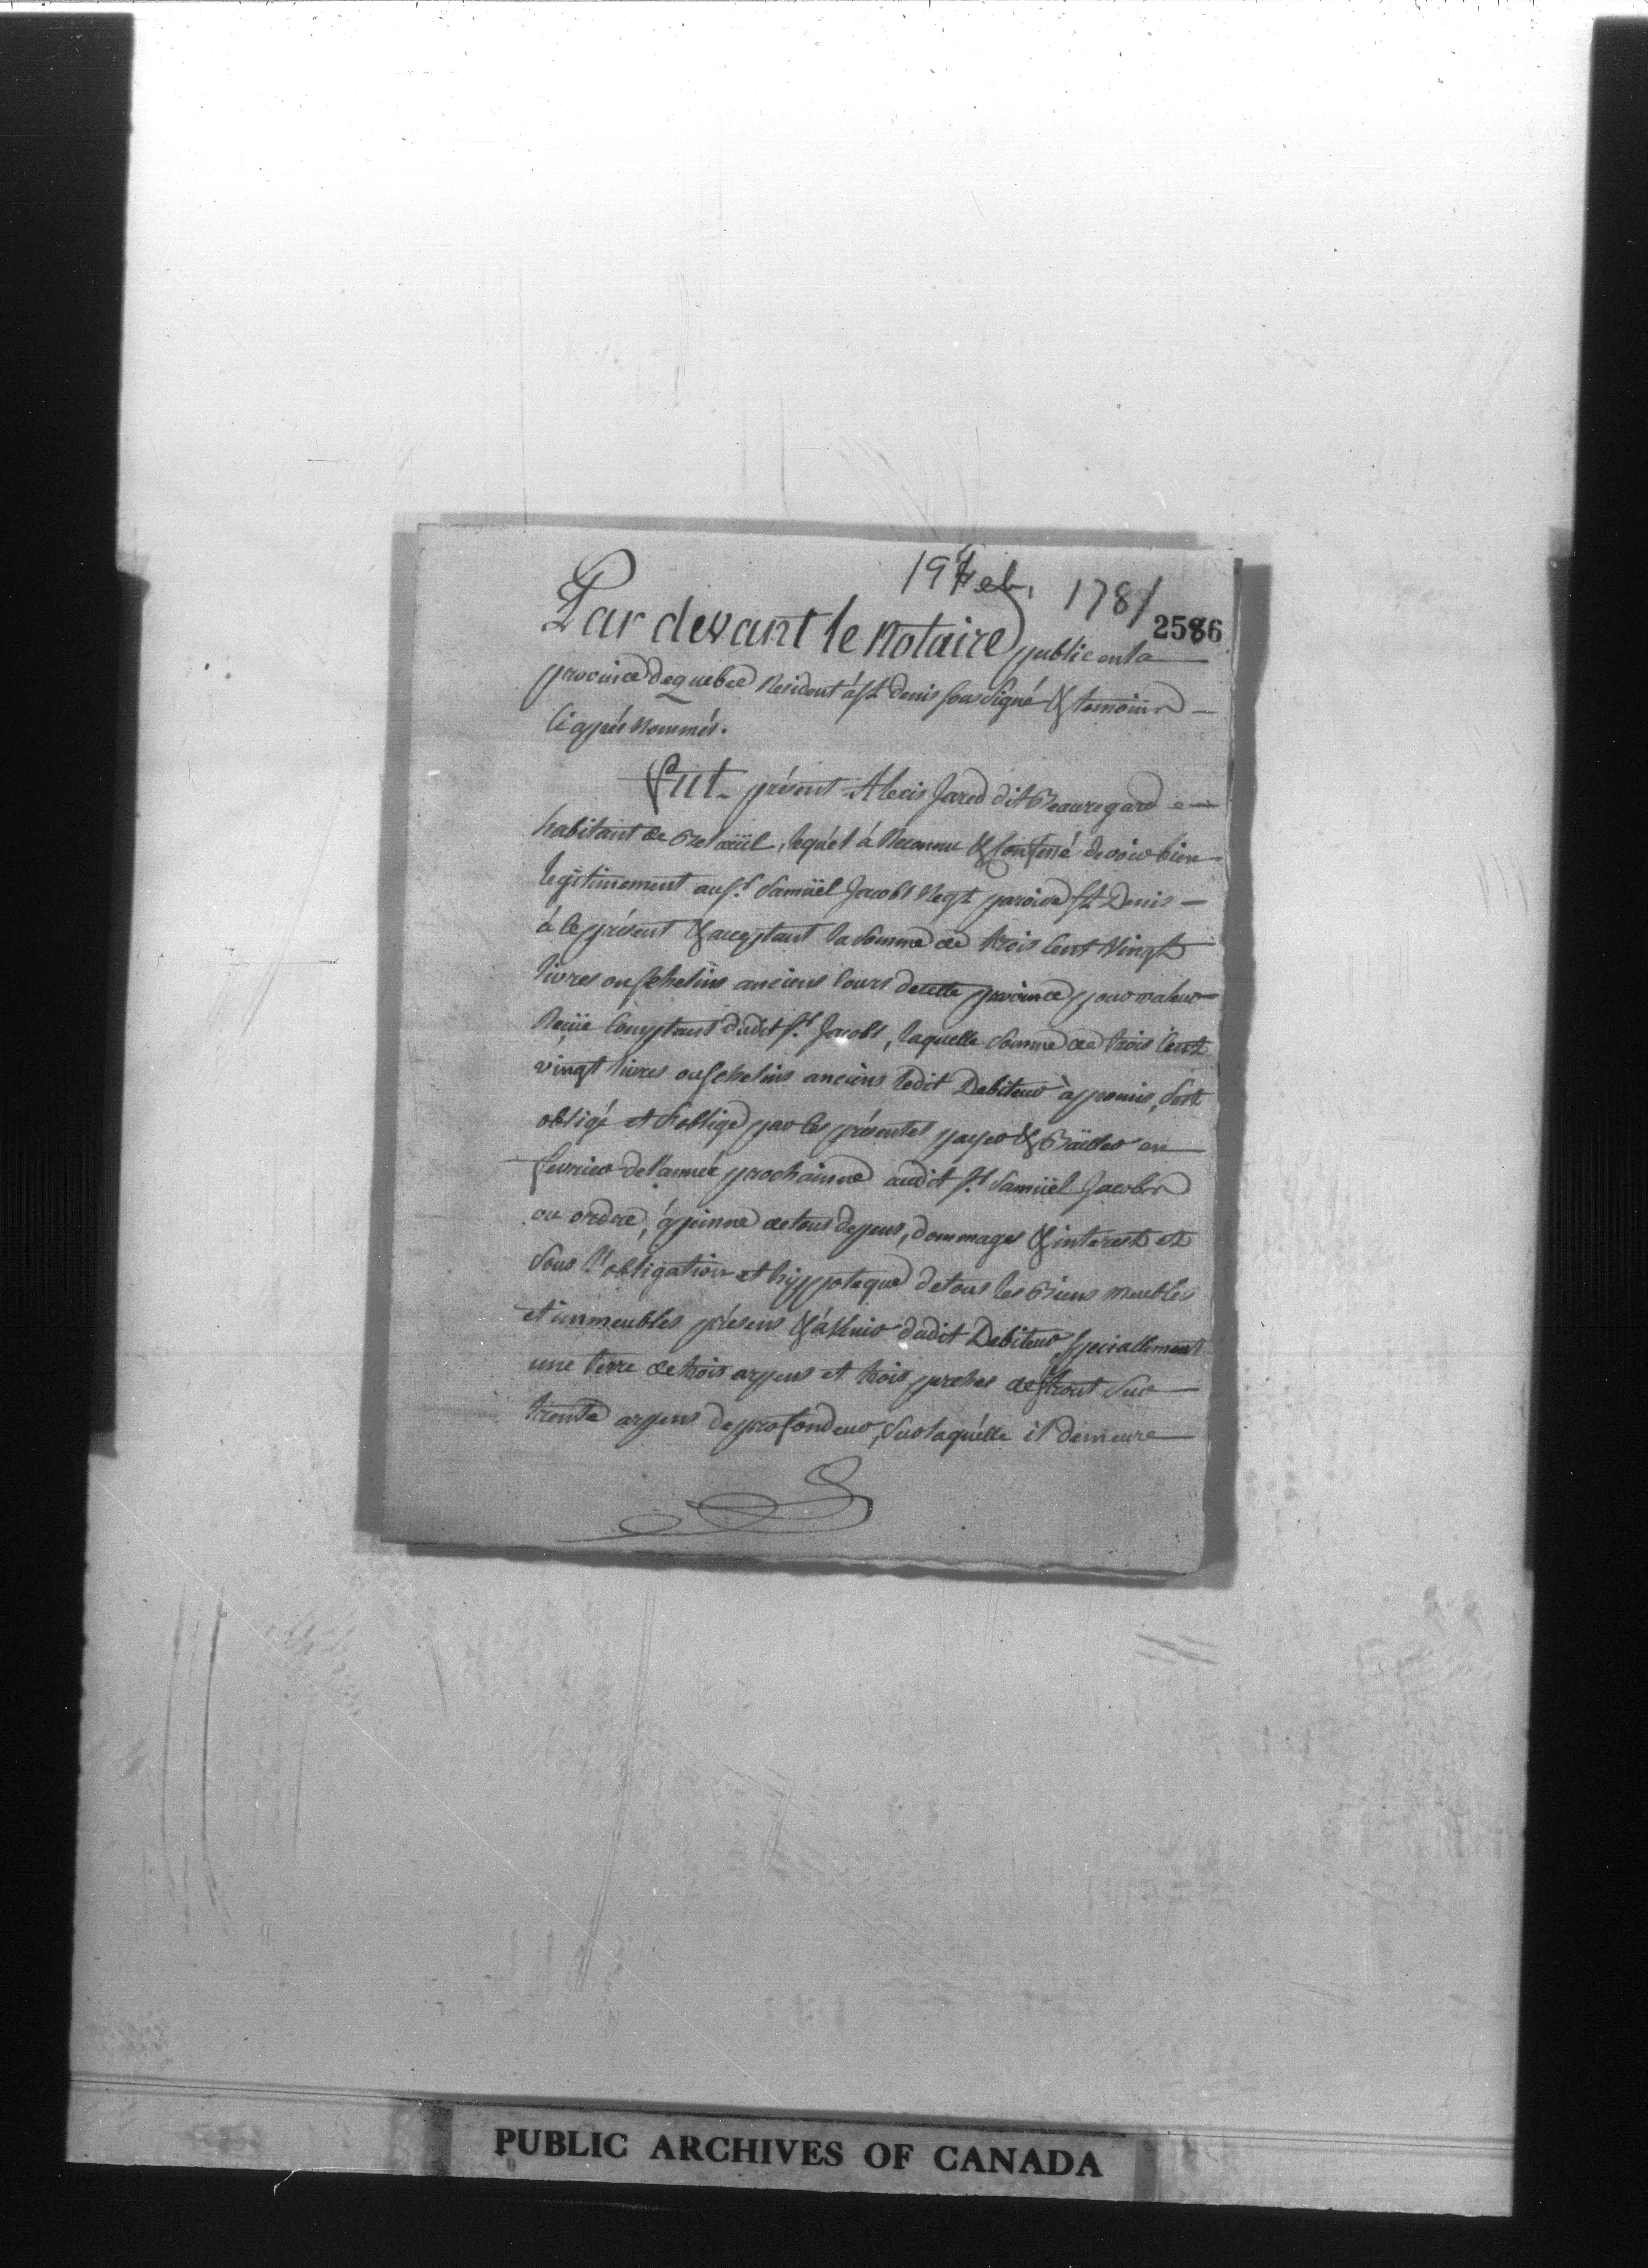 19 Feb. 1781
2586
Par devant le Notaire public en la
province de quebec Residant à St Denis sousigné & temoins
Ci après Nommés.
Fut présent Alexis Jared dit Beauregard
habitant de Belœüil, lequél à Reconnu & Confessé devoir bien
legitimement au Sr. Samüel Jacobs Negt paroisse St Denis
à Ce présent & acceptant la Somme de trois Cent Vingt
livres ou Schelins anciens Cours de cette province pour valeur
Reçüe Comptant dudit Sr. Jacobs, laquelle Somme de trois Cent
vingt livres ou Schelins anciens ledit Debiteur à promis, s'est
obligé et s'oblige par les présentes payer & Bailler en
fevrier de l'année prochainne audit Sr. Samüel Jacobs
ou ordre, à peinne de tous depens, dommages & interest et
Sous l'obligation et hÿppoteque de tous les Biens meubles
et immeubles présens & à Venir dudit Debiteur, speciallement
une terre de trois arpens et trois perches de front Sur
trente arpens de profondeur, Sur laquélle il demeure
PUBLIC ARCHIVES OF CANADA